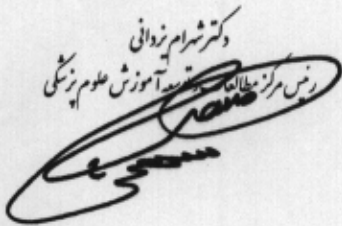 دکتر شهرام یزدانی
رئیس مرکز مطالعات و توسعه آموزش علوم پزشکی